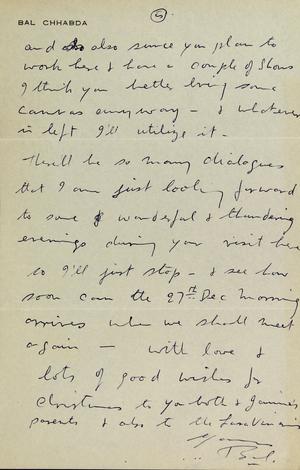 BAL CHHABDA
5
and also since you plan to
work here & have a couple of Shows
I think you better bring some
canvas anyway - & whatever
is left I'll utilize it -
There'll be so many dialogues
that I am just looking forward
to some wonderful & thundering
evenings during your visit here
so I'll just stop - & see how
soon can the 27th Dec morning
arrives when we shall meet
again - with love &
lots of good wishes for
Christmas to you both & Janine's
parents & also to the
Yours
Bal.